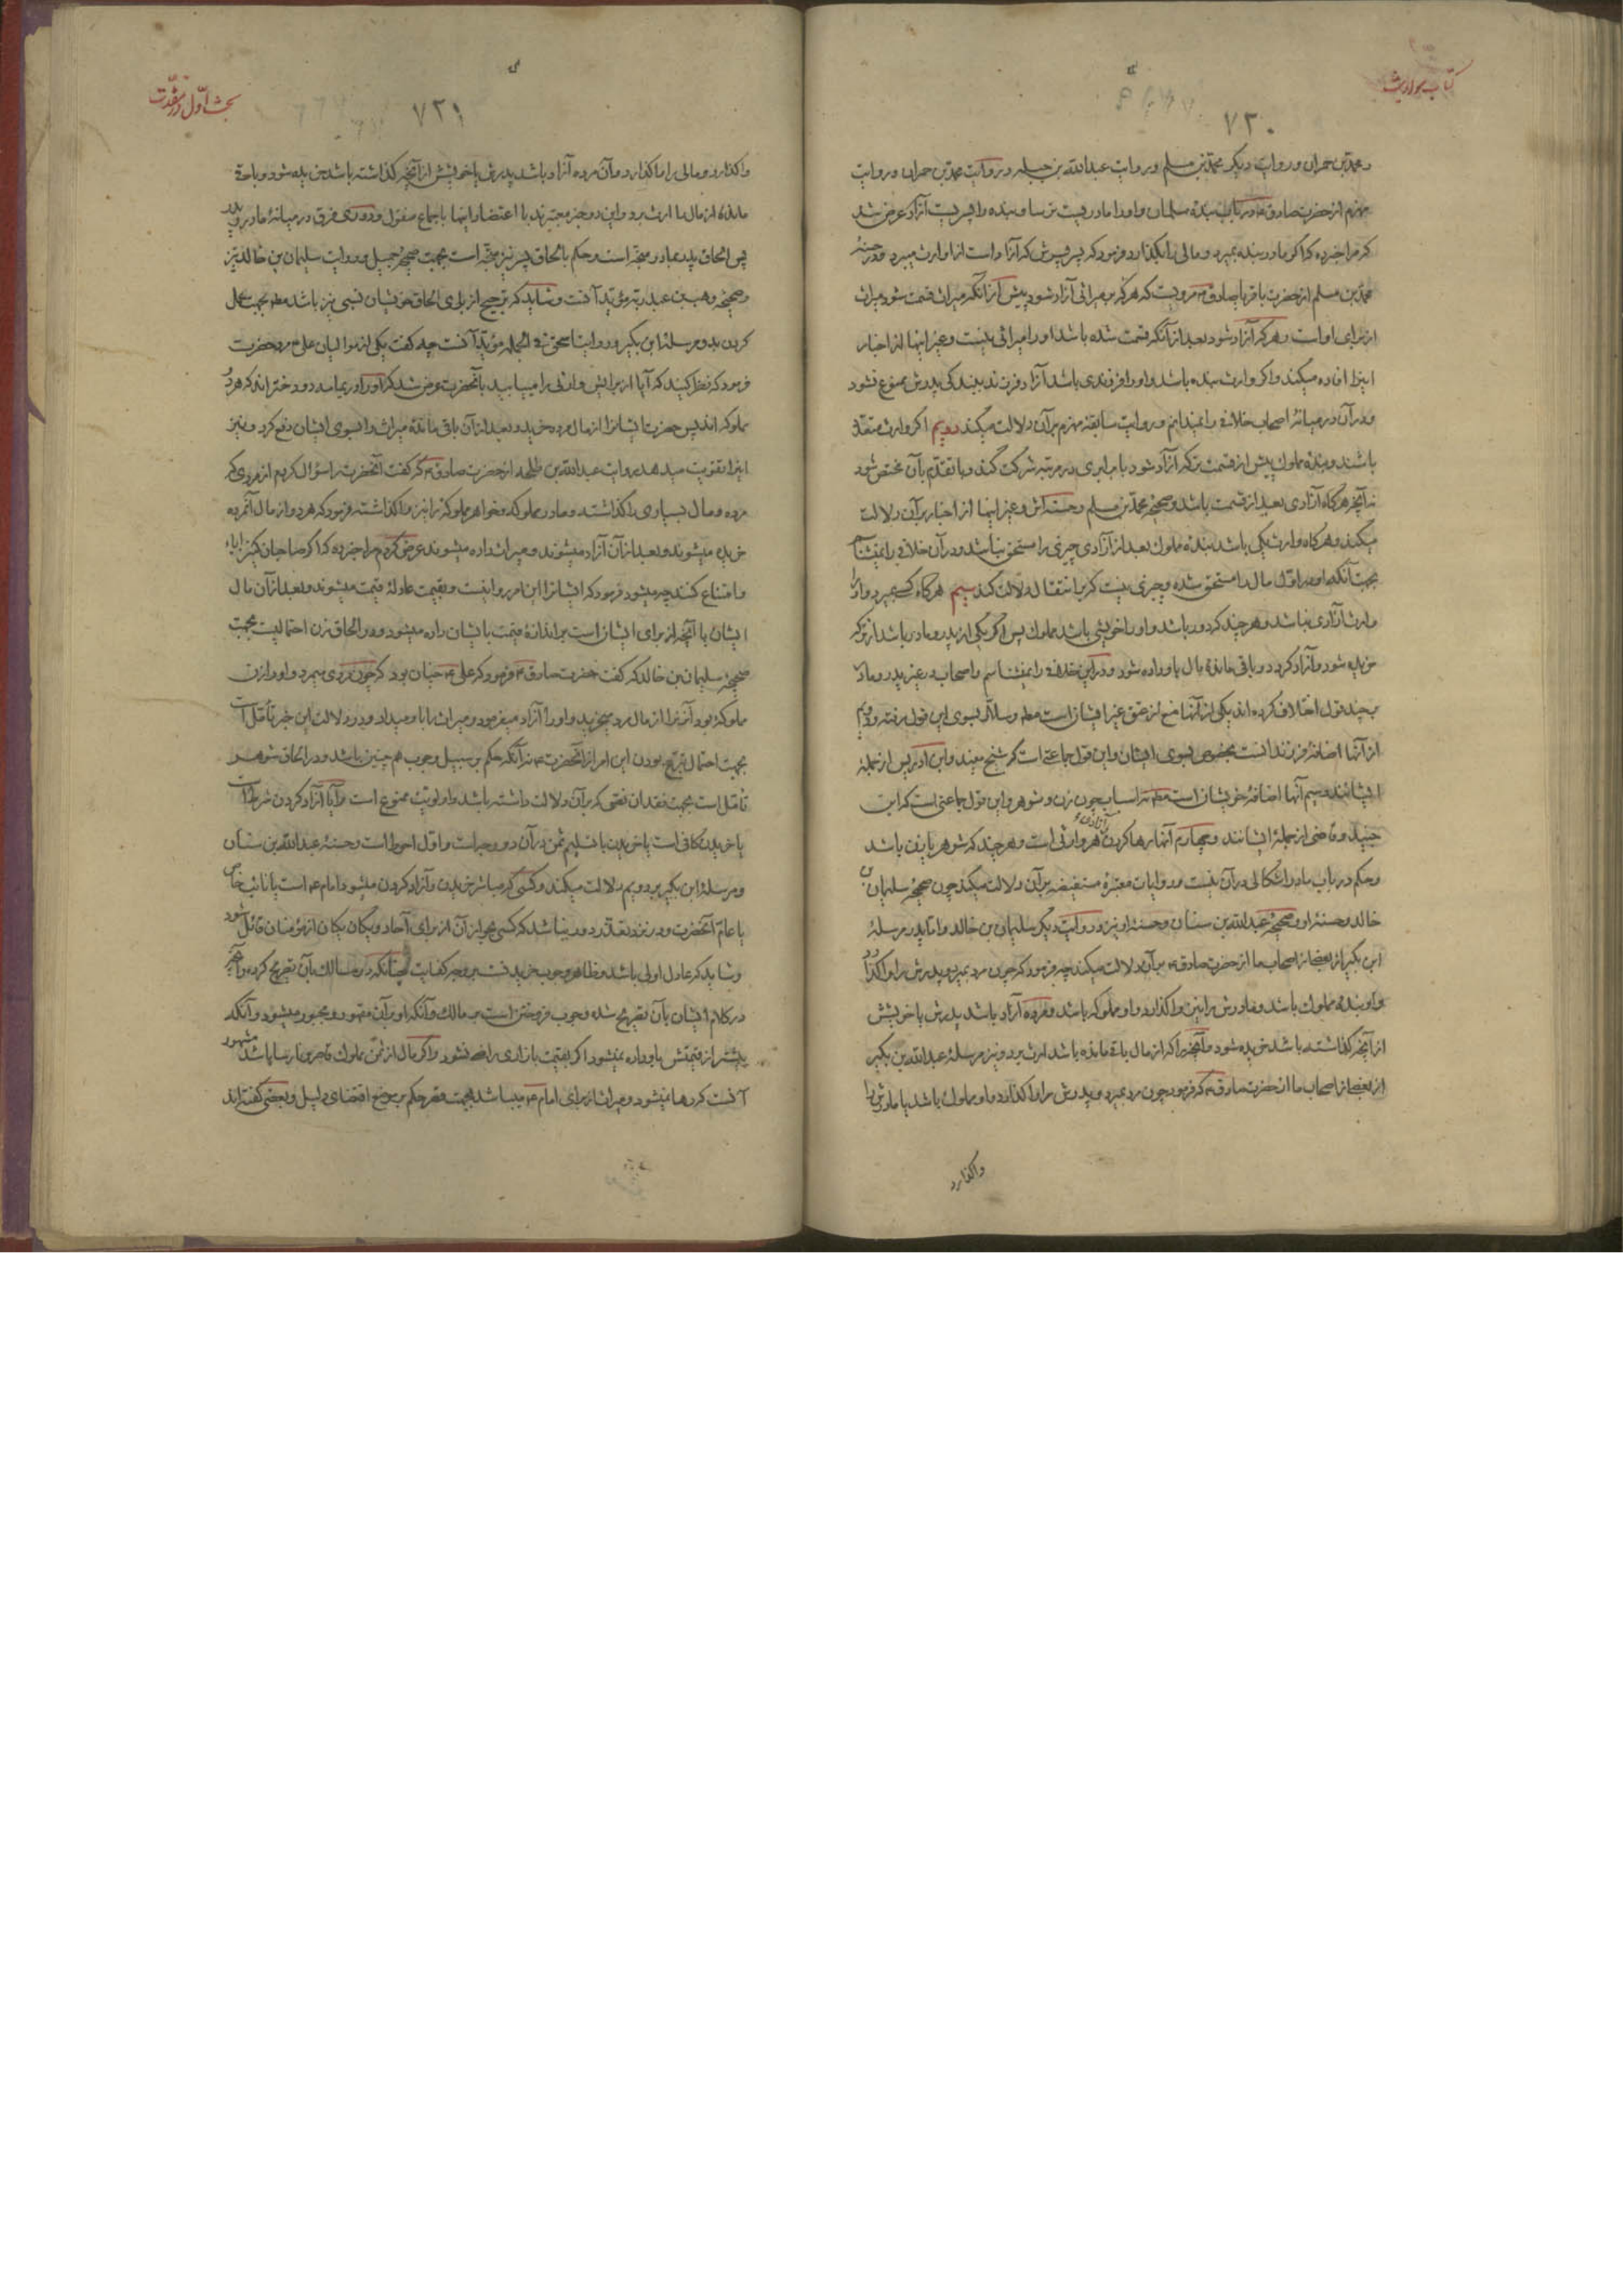 کتاب مواریث
۷۲۰
و محمد بن حمران و روایت دیگر محمد بن مسلم و روایت عبدالله بن جبله و روایت محمد بن حمران و روایت
مهزم از حضرت صادق ع در باب بندهٔ مسلمان و او را مادریست ترسا و بنده و او را پسریست آزاد که عرض شد
که مرا خبر ده که اگر مادر بنده بمیرد و مالی را بگذارد فرمود که پسر پسرش که آزاد است از او ارث میبرد و در حسنهٔ
محمد بن مسلم از حضرت باقر یا صادق ع مرویست که هر که بر میراثی آزاد شود پیش از آنکه میراث قسمت شود میراث
از برای او است و هر که آزاد شود بعد از آنکه قسمت شده باشد او را میراثی نیست و غیر اینها از اخبار
اینرا افاده میکند و اگر وارث بنده باشد و او را فرزندی باشد آزاد فرزند ببندگی پدرش ممنوع نشود
و در آن در میانهٔ اصحاب خلافی را نمیدانم و روایت سابقهٔ مهزم بر آن دلالت میکند دویم اگر وارث متعدد
باشند و بندهٔ مملوک پیش از قسمت ترکه آزاد شود با برابری در مرتبه شرکت کند و با تقدم بآن مختص شود
نه آنچه هرگاه آزادی بعد از قسمت باشد و صحیحهٔ محمد بن مسلم و حسنه‌اش و غیر اینها از اخبار بر آن دلالت
میکند و هرگاه وارث یکی باشد بندهٔ مملوک بعد از آزادی چیزی را مستحق نباشد و در آن خلافی را نمیشناسم
بجهت آنکه او در اول مال را مستحق شده و چیزی نیست که بر انتقال دلالت کند سیم هرگاه کسی بمیرد و او را
وارث آزادی نباشد و هر چند که دور باشد و او را خویشی باشد مملوک پس اگر یکی از پدر و مادر باشد از ترکه
خریده شود و آزاد گردد و باقی ماندهٔ مال باو داده شود و در این خلافی را نمیشناسم و اصحاب در غیر پدر و مادر
بچند قول اختلاف کرده‌اند یکی از آنها منع از عتق غیر ایشان است مطلقا و سلار بسوی این قول رفته و دویم
از آنها اضافهٔ فرزند است بخصوص بسوی ایشان و این قول جماعتی است که شیخ مفید و ابن ادریس از جملهٔ
ایشانند و سیم آنها اضافهٔ خویشان است مطلقا نه اسباب چون زن و شوهر و این قول جماعتی است که ابن
جنید و قاضی از جملهٔ ایشانند و چهارم آنها رها کردن هر وارثی است و هر چند که شوهر یا زن باشد
و حکم در باب مادر اشکالی در آن نیست و روایات معتبرهٔ مستفیضه بر آن دلالت میکند چون صحیحهٔ سلیمان بن
خالد و حسنهٔ او و صحیحهٔ عبدالله بن سنان و حسنهٔ او نیز و روایت دیگر سلیمان بن خالد و اما پدر مرسلهٔ
ابن بکیر از بعضی از اصحاب ما از حضرت صادق ع بر آن دلالت میکند چه فرمود که چون مرد بمیرد و پدرش را واگذارد
و او بندهٔ مملوک باشد و مادرش را نیز واگذارد و او مملوکه باشد و مرده آزاد باشد پدرش یا خویشش
از آنچه گذاشته باشد خریده شود و آنچه را که از مال باقی مانده باشد ارث برد و نیز مرسلهٔ عبدالله بن بکیر
از بعضی از اصحاب ما از حضرت صادق ع که فرمود چون مرد بمیرد و پدرش را واگذارد و او مملوک باشد یا مادرش را
واگذارد
بحث اول در مقدمات
۷۲۱
واگذارد و مالی را واگذارد و آن مرده آزاد باشد پدرش یا خویشش از آنچه گذاشته باشد خریده شود و باقی
ماندهٔ از مال را ارث برد و این دو خبر معتبرند با اعتضاد اینها باجماع منقول و دوری فرق در میانهٔ مادر و پدر
پس الحاق پدر بمادر متجه است و حکم بالحاق پسر نیز متجه است بجهت صحیحهٔ جمیل و روایت سلیمان بن خالد نیز
و صحیحهٔ وهب بن عبد ربه مؤید آنست و شاید که ترجیح از برای الحاق خویشان نسبی نیز باشد مطلقا بجهت عمل
کردن بدو مرسلهٔ ابن بکیر و روایت اسحق نیز فی الجمله مؤید آنست چه گفت یکی از موالیان علی ع مرد حضرت
فرمود که نظر کنید که آیا از برایش وارثی را مییابید بآنحضرت عرض شد که او را در یمامه دو دختراند که هر دو
مملوکه‌اند پس حضرت ایشانرا از مال مرده خرید و بعد از آن باقی ماندهٔ میراث را بسوی ایشان دفع کرد و نیز
اینرا تقویت میدهد روایت عبدالله بن طلحه از حضرت صادق ع که گفت آنحضرت را سؤال کردم از مردی که
مرده و مال بسیاری را گذاشته و مادر مملوکه و خواهر مملوکه را نیز واگذاشته فرمود که هر دو از مال آنمرده
خریده میشوند و بعد از آن آزاد میشوند و میراث داده میشوند عرض کردم مرا خبر ده که اگر صاحبان کنیز اباء
و امتناع کنند چه میشود فرمود که ایشانرا این امر روا نیست و بقیمت عادله قیمت میشوند و بعد از آن مال
ایشان با آنچه از برای ایشان است بر اندازهٔ قیمت بایشان داده میشود و در الحاق زن احتمالیست بجهت
صحیحهٔ سلیمان بن خالد که گفت حضرت صادق ع فرمود که علی ع چنان بود که چون مردی میمرد و او را زن
مملوکهٔ بود آنزنرا از مال مرد میخرید و او را آزاد میفرمود و میراث را باو میداد و در دلالت این خبر تأمل است
بجهت احتمال تبرع بودن این امر از آنحضرت ع نه آنکه حکم بر سبیل وجوب هم چنین باشد و در الحاق شوهر
تأمل است بجهت فقدان نصی که بر آن دلالت داشته باشد و اولویت ممنوع است و آیا آزاد کردن شرط است
یا خریدن کافی است یا خریدن با تسلیم ثمن در آن دو وجه است و اول احوط است و حسنهٔ عبدالله بن سنان
و مرسلهٔ ابن بکیر بر دویم دلالت میکند و کسی که مباشر خریدن و آزاد کردن میشود امام ع است یا نائب خاص
یا عام آنحضرت و در نزد تعذر دور نباشد که کسی بجواز آن از برای آحاد و یگان یگان از مؤمنان قائل شود
و شاید که عادل اولی باشد و ظاهر وجوب خرید نست بر وجه کفایت چنانکه در مسالک بآن تصریح کرده و آنچه
در کلام ایشان بآن تصریح شده وجوب فروختن است بر مالک و آنکه او بر آن مقهور و مجبور میشود و آنکه
بیشتر از قیمتش باو داده نمیشود اگر بقیمت بازاری راضی نشود و اگر مال از ثمن مملوک قاصر و نارسا باشد مشهور
آنست که رها نمیشود و میراث از برای امام ع میباشد بجهت قصر حکم بر موضع اقتضای دلیل و بعضی گفته‌اند